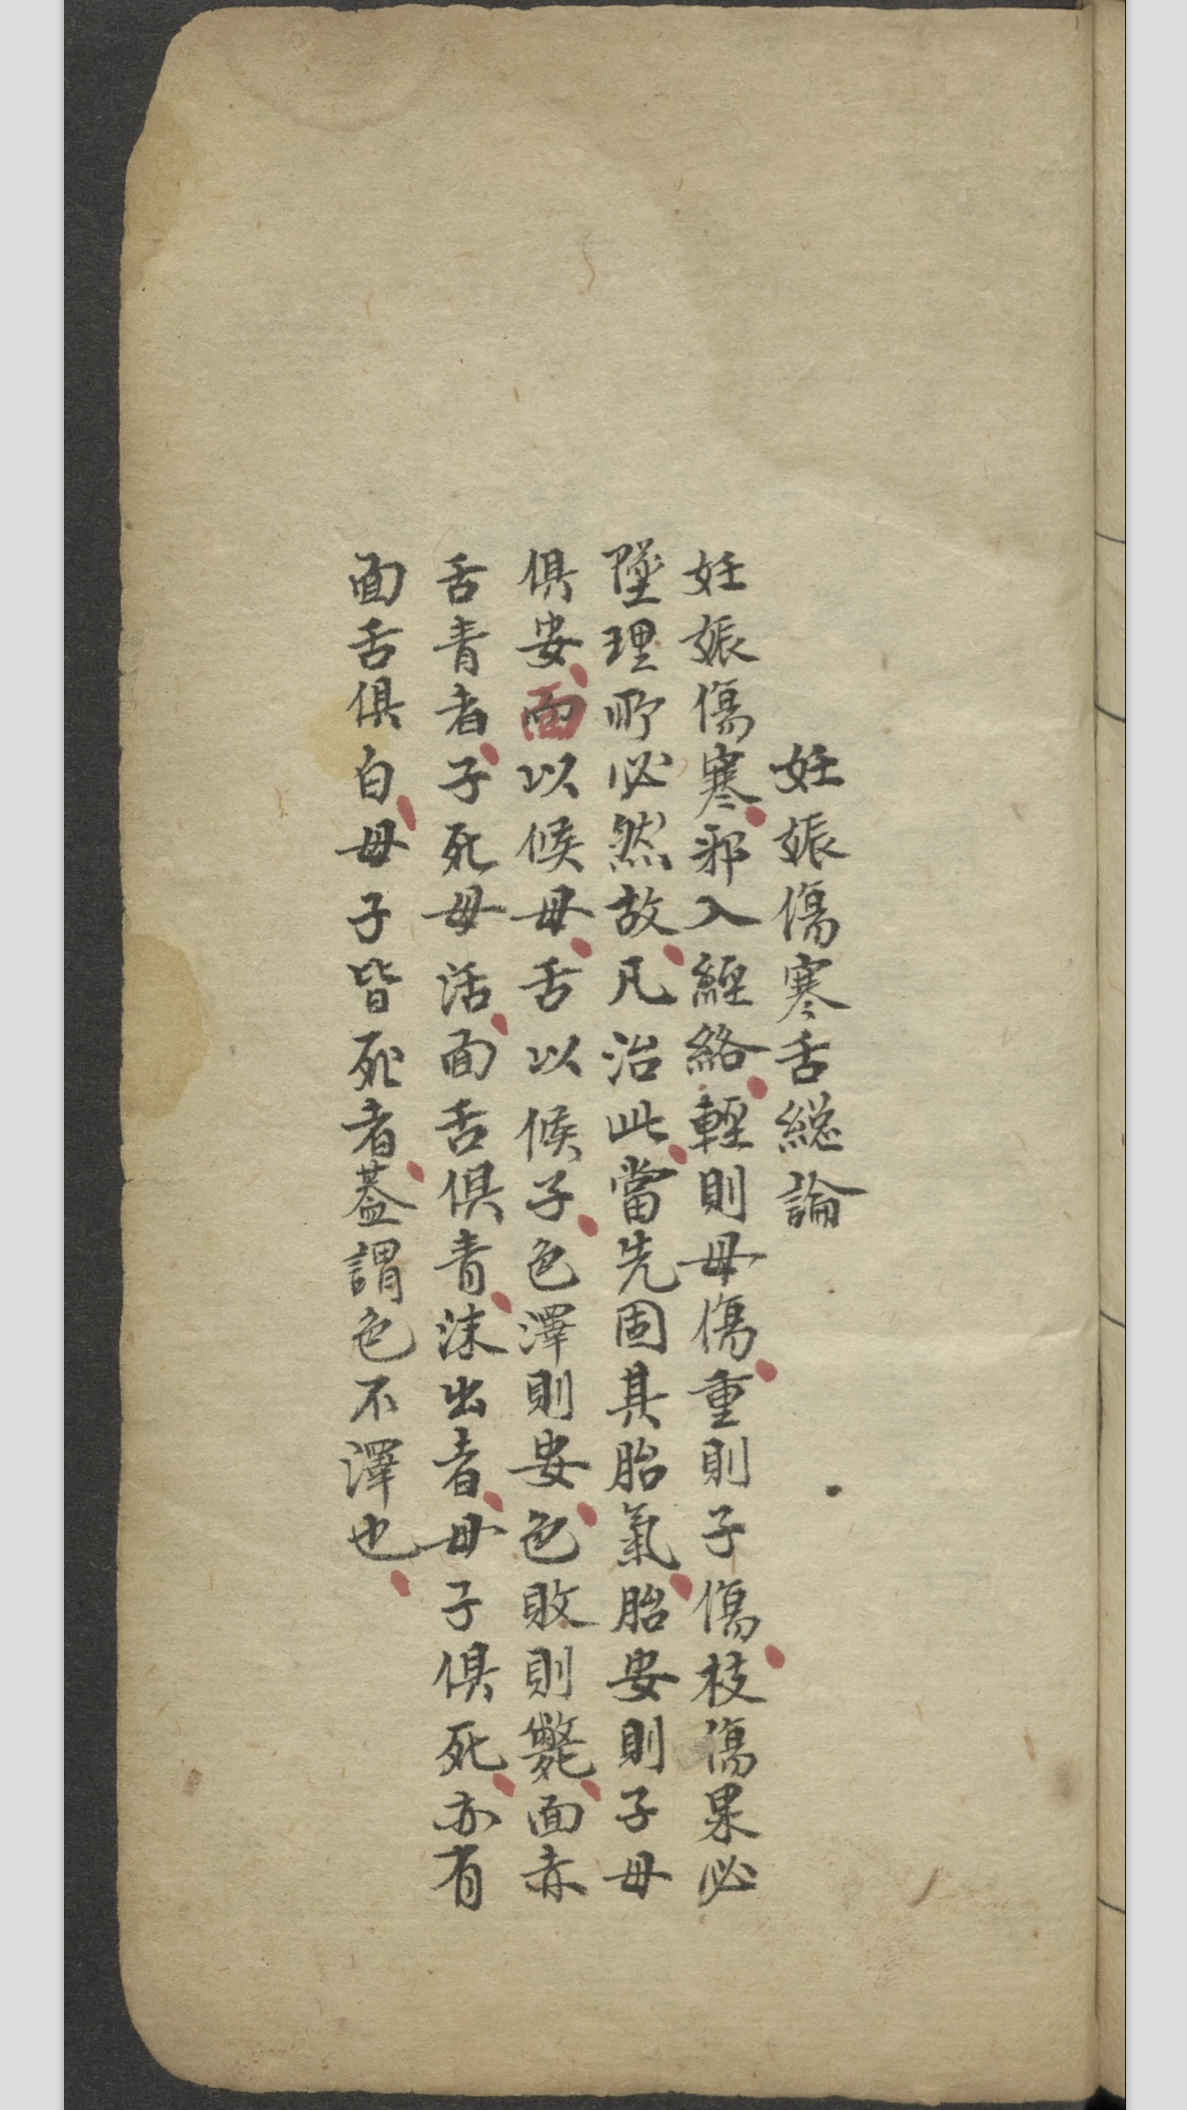 妊娠傷寒舌緫論
妊娠傷寒邪入經絡輕則母傷重則子傷枝傷果必
墜理所必然故凡治此當先固其胎氣胎安則子母
俱安面以候母舌以候子色澤則安色敗則斃面赤
舌青者子死母活面舌俱青沫出者母子俱死亦有
面舌俱白母子皆死者葢謂色不澤也